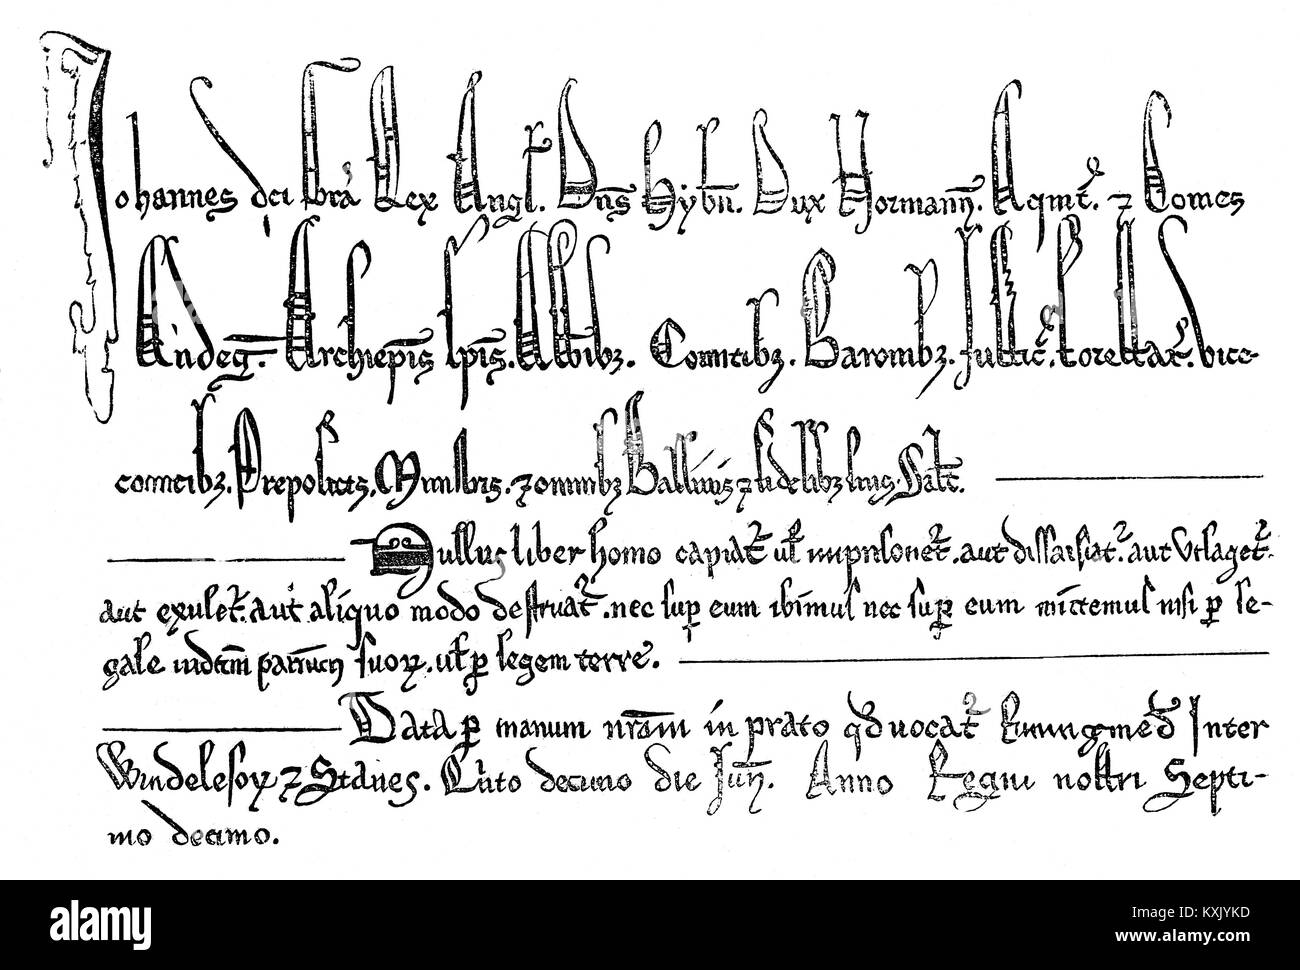 Johannes dei gr̄a Rex Angl̄. Dn̄s Hyb̄n. Dux Normann̄. Aqnit̄. ⁊ Comes
Andeg̅. Archiepīs Ep̄is. Abb̄ibꝫ. Comitibꝫ. Baronibꝫ. Justic̄. Forestar̄. Vice-
comitibꝫ. Prepositis. Ministris. ⁊ omnibꝫ Ballivis ⁊ fidelibꝫ suis. Salt̄.
Nullus liber homo capiat̄ ul̄ imprisonet̄. aut dissaisiat̄. aut utlaget̄.
aut exulet̄. aut aliquo modo destruat̄. nec sup̄ eum ibimus nec sup̄ eum mittemus nisi ꝑ le-
gale iudiciū̄m parium suoꝝ. ul̄ ꝑ legem terre.
Data ꝑ manum nr̄am in prato qd̄ vocat̄ Runingmed̄ Inter
Windelesoꝝ ⁊ Stanes. Quīto decimo die Jun̄. Anno Regni nostri Septi-
mo decimo.
alamy
alamy
Image ID: KXJYKD
www.alamy.com